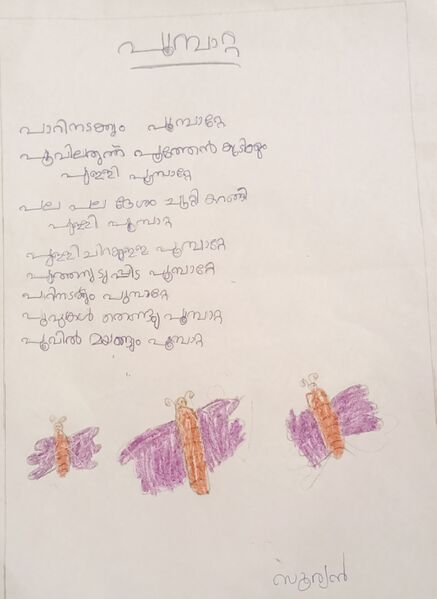 പൂമ്പാറ്റ
പാറിനടക്കും പൂമ്പാറ്റേ
പൂവിലരുന്ന് പൂന്തേൻ കുടിക്കും
പുള്ളി പൂമ്പാറ്റേ
പല പല ദേശം ചുറ്റി കറങ്ങി
പുള്ളി പൂമ്പാറ്റ
പുള്ളിചിറകുള്ള പൂമ്പാറ്റേ
പുത്തനുടുപ്പിട്ട പൂമ്പാറ്റേ
പാറിനടക്കും പൂമ്പാറ്റേ
പൂവുകൾ പൂമ്പാറ്റ
പൂവിൽ മയങ്ങും പൂമ്പാറ്റ
സൂര്യൻ